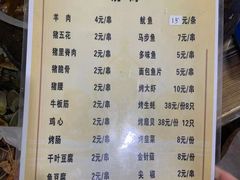 羊肉 2元/串 鱿鱼 15元/条
猪五花 2元/串 马步鱼 7元/串
猪里脊肉 2元/串 多味鱼 5元/串
猪脆骨 2元/串 面包鱼片 5元/串
猪腰 2元/串 烤大虾 10元/串
牛板筋 2元/串 烤生蚝 38元/份8只
鸡心 2元/串 烤扇贝 38元/份 12只
烤肠 2元/串 烤韭菜 8元/份
千叶豆腐 2元/串 金针菇 8元/份
鱼豆腐 2元/串 尖椒 2元/串